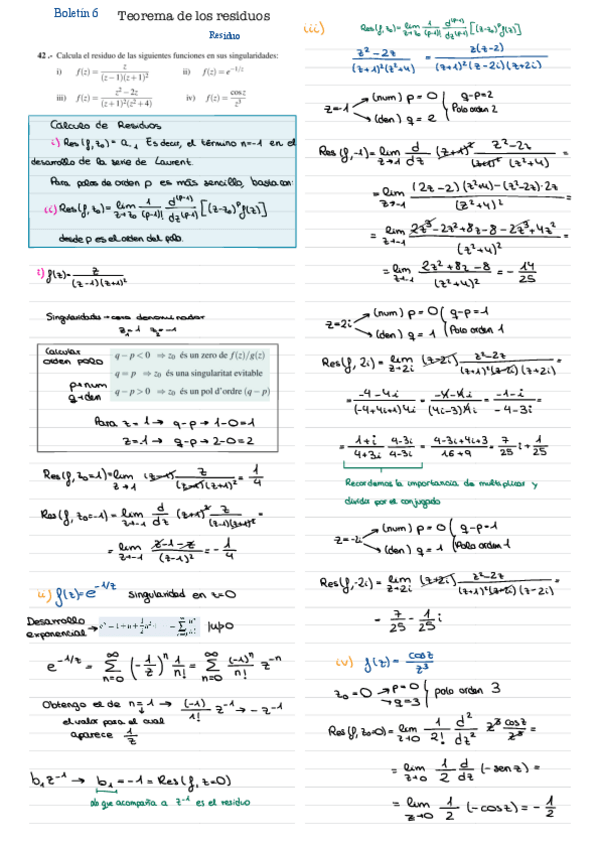 Boletín 6 Teorema de los residuos
Residuo
42.- Calcula el residuo de las siguientes funciones en sus singularidades:
i) f(z) = z/((z−1)(z+1)²) ii) f(z) = e^(−1/z)
iii) f(z) = (z²−2z)/((z+1)²(z²+4)) iv) f(z) = cos z/z³
Cálculo de Residuos
i) Res(f, z₀) = a₋₁ Es decir, el término n=-1 en el
desarrollo de la serie de Laurent.
Para polos de orden p es más sencillo, basta con:
ii) Res(f, z₀) = lim z→z₀ 1/(p-1)! d^(p-1)/dz^(p-1) [(z-z₀)^p f(z)]
desde p es el orden del polo.
i) f(z) = z/((z-1)(z+1)²)
Singularidades → cero denominador
z₁=1 z₂=-1
Calcular
orden polo
p→num
q→den
q − p < 0 ⇒ z₀ és un zero de f(z)/g(z)
q = p ⇒ z₀ és una singularitat evitable
q − p > 0 ⇒ z₀ és un pol d'ordre (q − p)
Para z=1 → q-p → 1-0=1
z=-1 → q-p → 2-0=2
Res(f, z₀=1) = lim z→1 (z-1) z/((z-1)(z+1)²) = 1/4
Res(f, z₀=-1) = lim z→-1 d/dz (z+1)² z/((z-1)(z+1)²) =
= lim z→-1 (z-1-z)/(z-1)² = -1/4
ii) f(z)=e^(-1/z) singularidad en z=0
Desarrollo
exponencial →
|u|>0
e^(-1/z) = ∑ n=0 ∞ (-1/z)^n 1/n! = ∑ n=0 ∞ (-1)^n/n! z^-n
Obtengo el de n=1 → (-1)/1! z^-1 → -z^-1
el valor para el cual
aparece 1/z
b₁z^-1 → b₁ = -1 = Res(f, z=0)
lo que acompaña a z^-1 es el residuo
iii) Res(f, z₀) = lim z→z₀ 1/(p-1)! d^(p-1)/dz^(p-1) [(z-z₀)^p f(z)]
(z²-2z)/((z+1)²(z²+4)) = z(z-2)/((z+1)²(z-2i)(z+2i))
z=-1 (num) p=0 q-p=2
(den) q=2 Polo orden 2
Res(f,-1) = lim z→-1 d/dz (z+1)² (z²-2z)/((z+1)²(z²+4)) =
= lim z→-1 ((2z-2)(z²+4)-(z²-2z)·2z)/(z²+4)² =
= lim z→-1 (2z³-2z²+8z-8-2z³+4z²)/(z²+4)² =
= lim z→-1 (2z²+8z-8)/(z²+4)² = -14/25
z=2i (num) p=0 q-p=1
(den) q=1 Polo orden 1
Res(f, 2i) = lim z→2i (z-2i) (z²-2z)/((z+1)²(z-2i)(z+2i)) =
= (-4-4i)/((-4+4i+1)4i) = (-4-4i)/((4i-3)4i) = (-1-i)/(-4-3i) =
= (1+i)/(4+3i) (4-3i)/(4-3i) = (4-3i+4i+3)/(16+9) = 7/25 i + 1/25
Recordemos la importancia de multiplicar y
dividir por el conjugado
z=-2i (num) p=0 q-p=1
(den) q=1 Polo orden 1
Res(f,-2i) = lim z→2i (z+2i) (z²-2z)/((z+1)²(z+2i)(z-2i)) =
= 7/25 - 1/25 i
iv) f(z) = cos z/z³
z₀=0 → p=0 polo orden 3
→ q=3
Res(f, z₀=0) = lim z→0 1/2! d²/dz² z³ cos z/z³ =
= lim z→0 1/2 d/dz (-sen z) =
= lim z→0 1/2 (-cos z) = -1/2